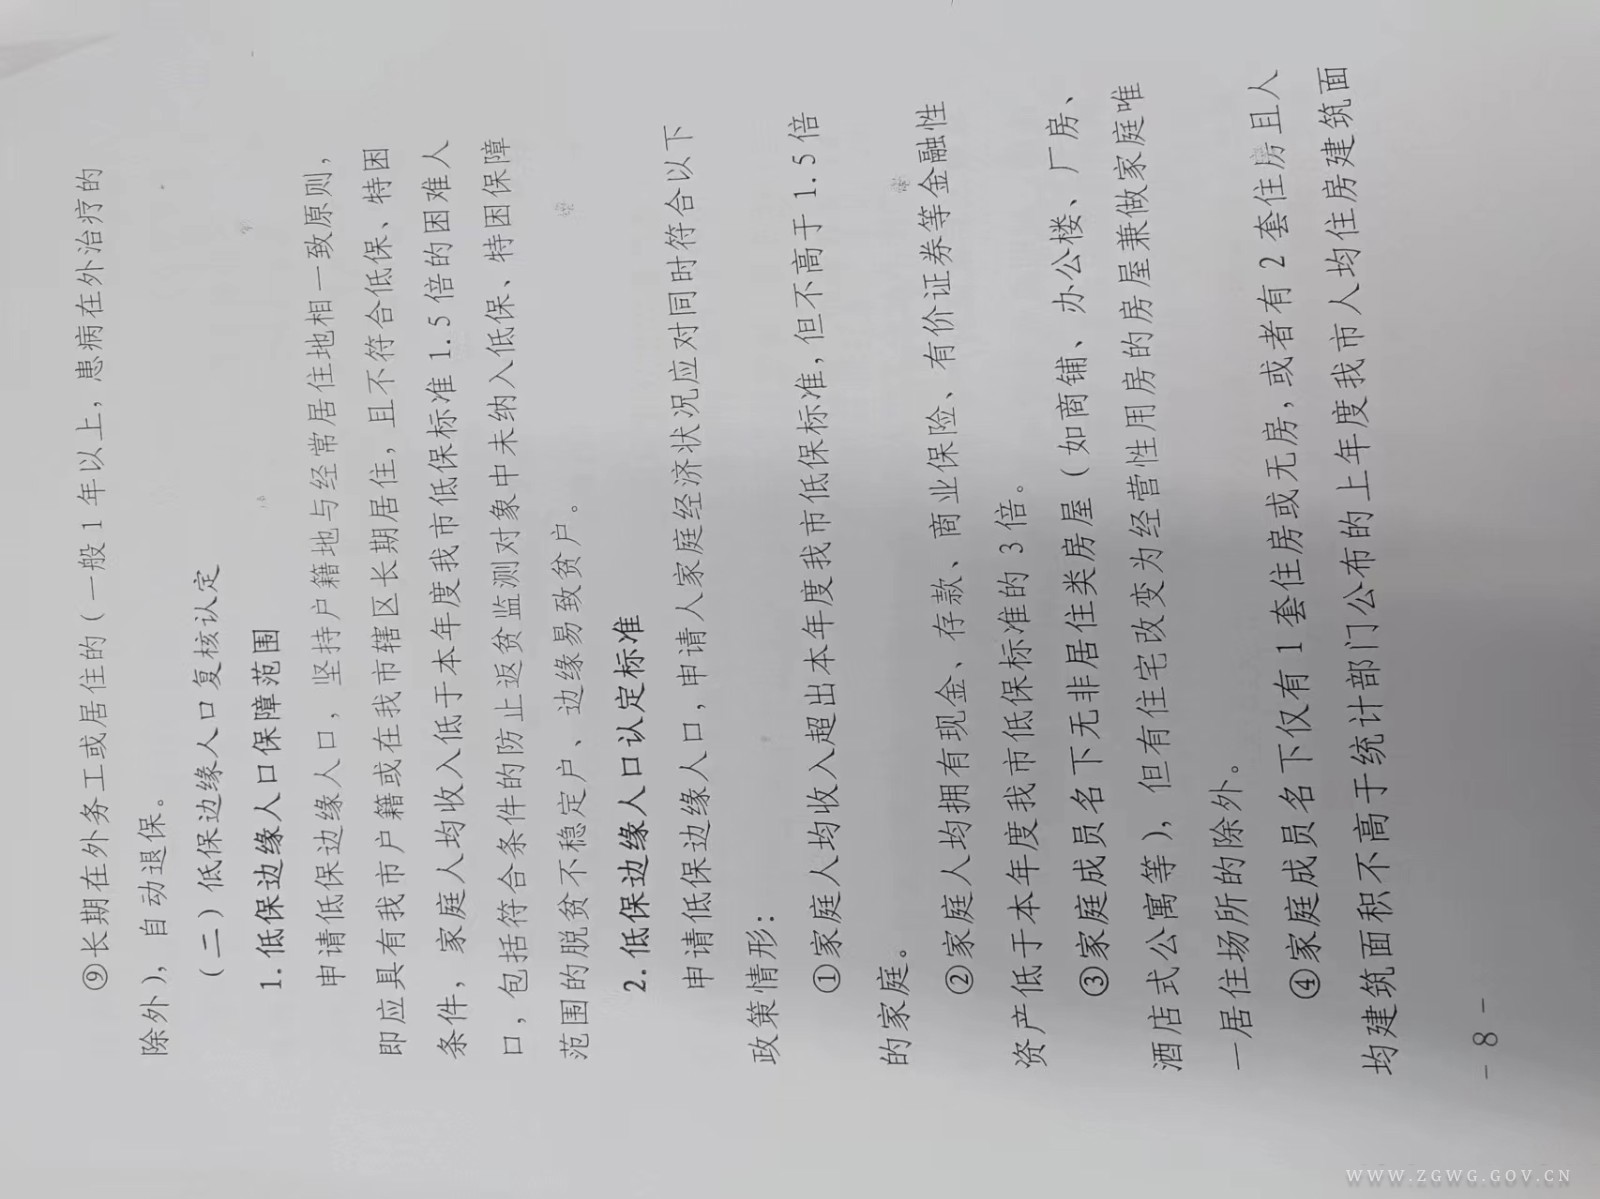 ⑨长期在外务工或居住的（一般1年以上，患病在外治疗的
除外），自动退保。
（二）低保边缘人口复核认定
1.低保边缘人口保障范围
申请低保边缘人口，坚持户籍地与经常居住地相一致原则，
即应具有我市户籍或在我市辖区长期居住，且不符合低保、特困
条件，家庭人均收入低于本年度我市低保标准1.5倍的困难人
口，包括符合条件的防止返贫监测对象中未纳入低保、特困保障
范围的脱贫不稳定户、边缘易致贫户。
2.低保边缘人口认定标准
申请低保边缘人口，申请人家庭经济状况应对同时符合以下
政策情形：
①家庭人均收入超出本年度我市低保标准，但不高于1.5倍
的家庭。
②家庭人均拥有现金、存款、商业保险、有价证券等金融性
资产低于本年度我市低保标准的3倍。
③家庭成员名下无非居住类房屋（如商铺、办公楼、厂房、
酒店式公寓等），但有住宅改变为经营性用房的房屋兼做家庭唯
一居住场所的除外。
④家庭成员名下仅有1套住房或无房，或者有2套住房且人
均建筑面积不高于统计部门公布的上年度我市人均住房建筑面
- 8 -
WWW.ZGWG.GOV.CN